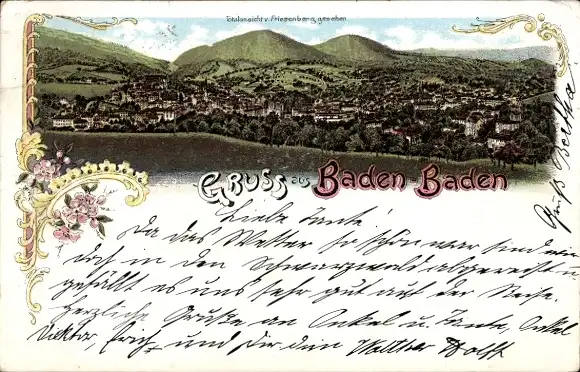 Totalansicht v. Friesenberg gesehen.
Gruss aus Baden Baden
Liebe Tante!
Da das Wetter so schön war sind wir
doch in den Schwarzwald abgereist u
gefällt es uns sehr gut auf der Reise.
Herzliche Grüße an Onkel u. Tante, Onkel
Viktor, Erich und Dir dein Walther Wolff
Gruß Bertha